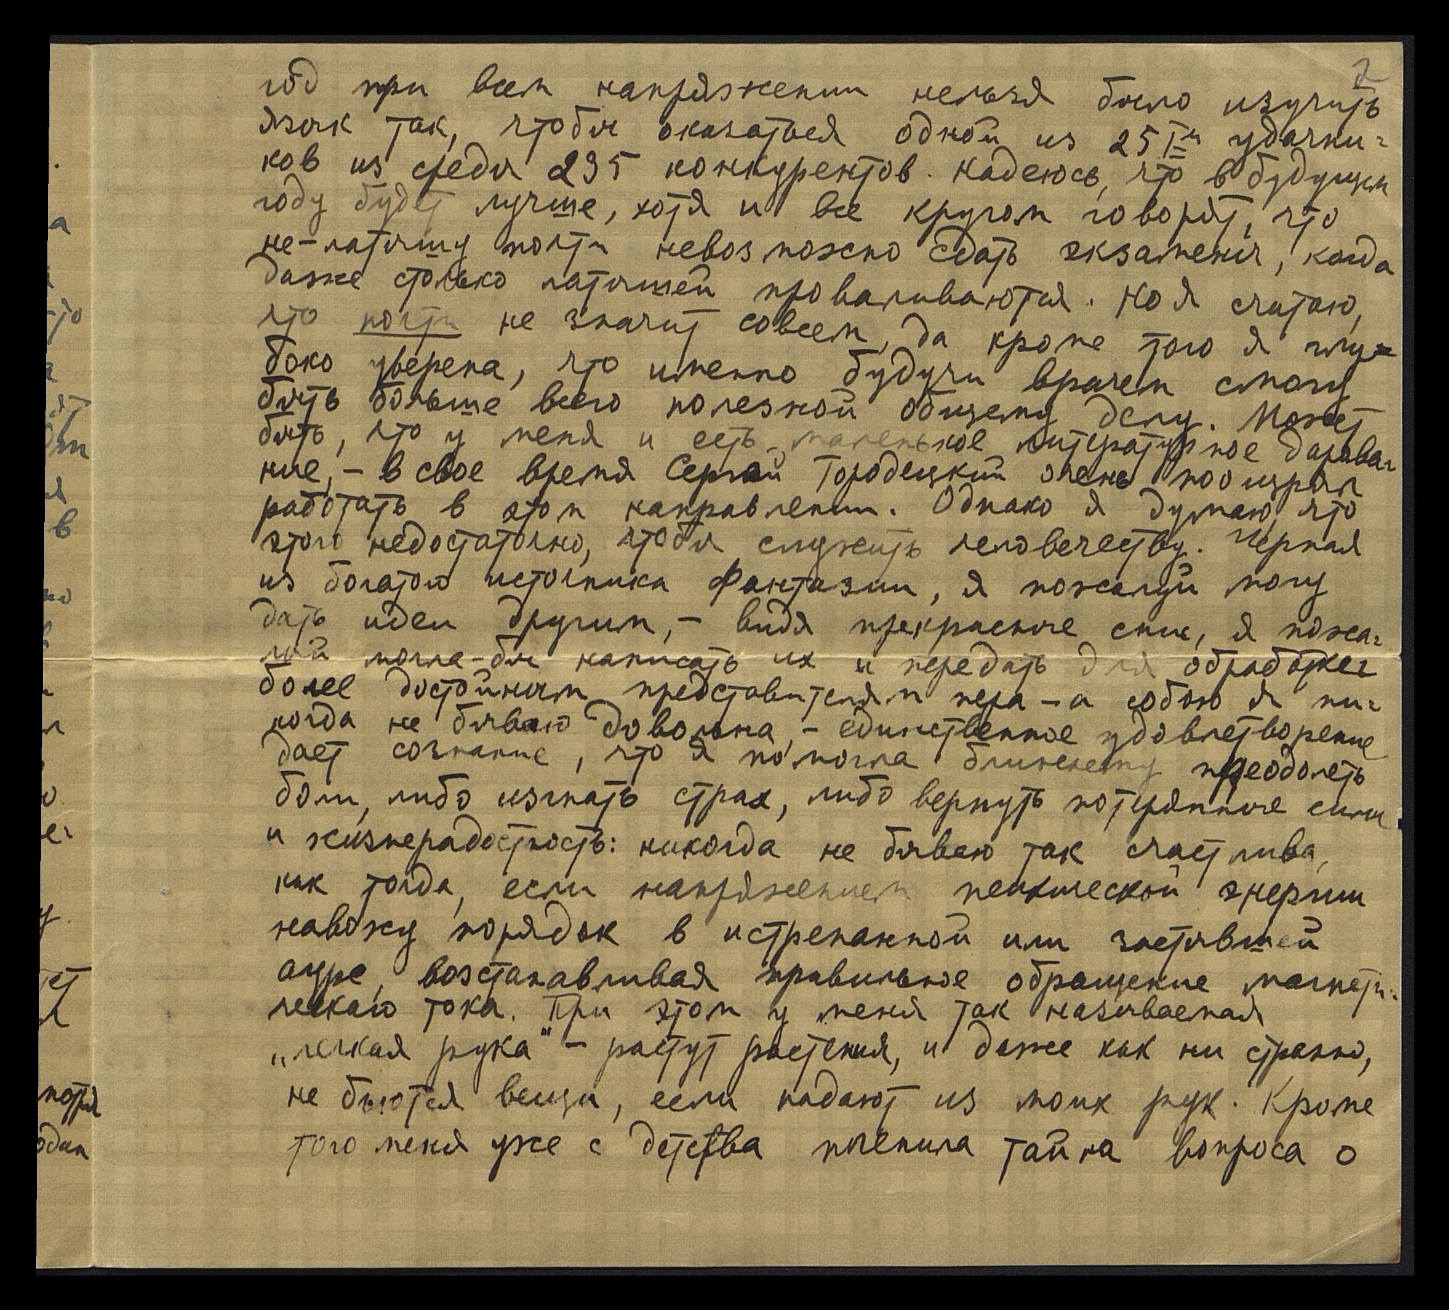 2
год при всем напряжении нельзя было изучить
язык так, чтобы оказаться одной из 25 удачни=
ков из среды 235 конкурентов. Надеюсь, что в будущем
году будет лучше, хотя и все кругом говорят, что
не-латышу почти невозможно сдать экзамены, когда
даже столько латышей проваливаются. Но я считаю,
что почти не значит совсем, да кроме того я глу=
боко уверена, что именно будучи врачем смогу
быть больше всего полезной общему делу. Может
быть, что у меня и есть маленькое литературное дарова=
ние, – в свое время Сергей Городецкий очень поощрял
работать в этом направлении. Однако я думаю, что
этого недостаточно, чтобы служить человечеству. Черпая
из богатого источника фантазии, я пожалуй могу
дать идеи другим, – видя прекрасные сны, я пожа=
луй могла-бы написать их и передать для обработки
более достойным представителям пера – а собою я ни=
когда не бываю довольна, – единственное удовлетворение
дает сознание, что я помогла ближнему преодолеть
боли, либо изгнать страх, либо вернуть потерянные силы
и жизнерадостность: никогда не бываю так счастлива,
как тогда, если напряжением психической энергии
навожу порядок в истрепанной или застывшей
ауре, возстанавливая правильное обращение магнети=
ческаго тока. При этом у меня так называемая
„легкая рука" – растут растения, и даже как ни странно,
не бьются вещи, если падают из моих рук. Кроме
того меня уже с детства пленила тайна вопроса о